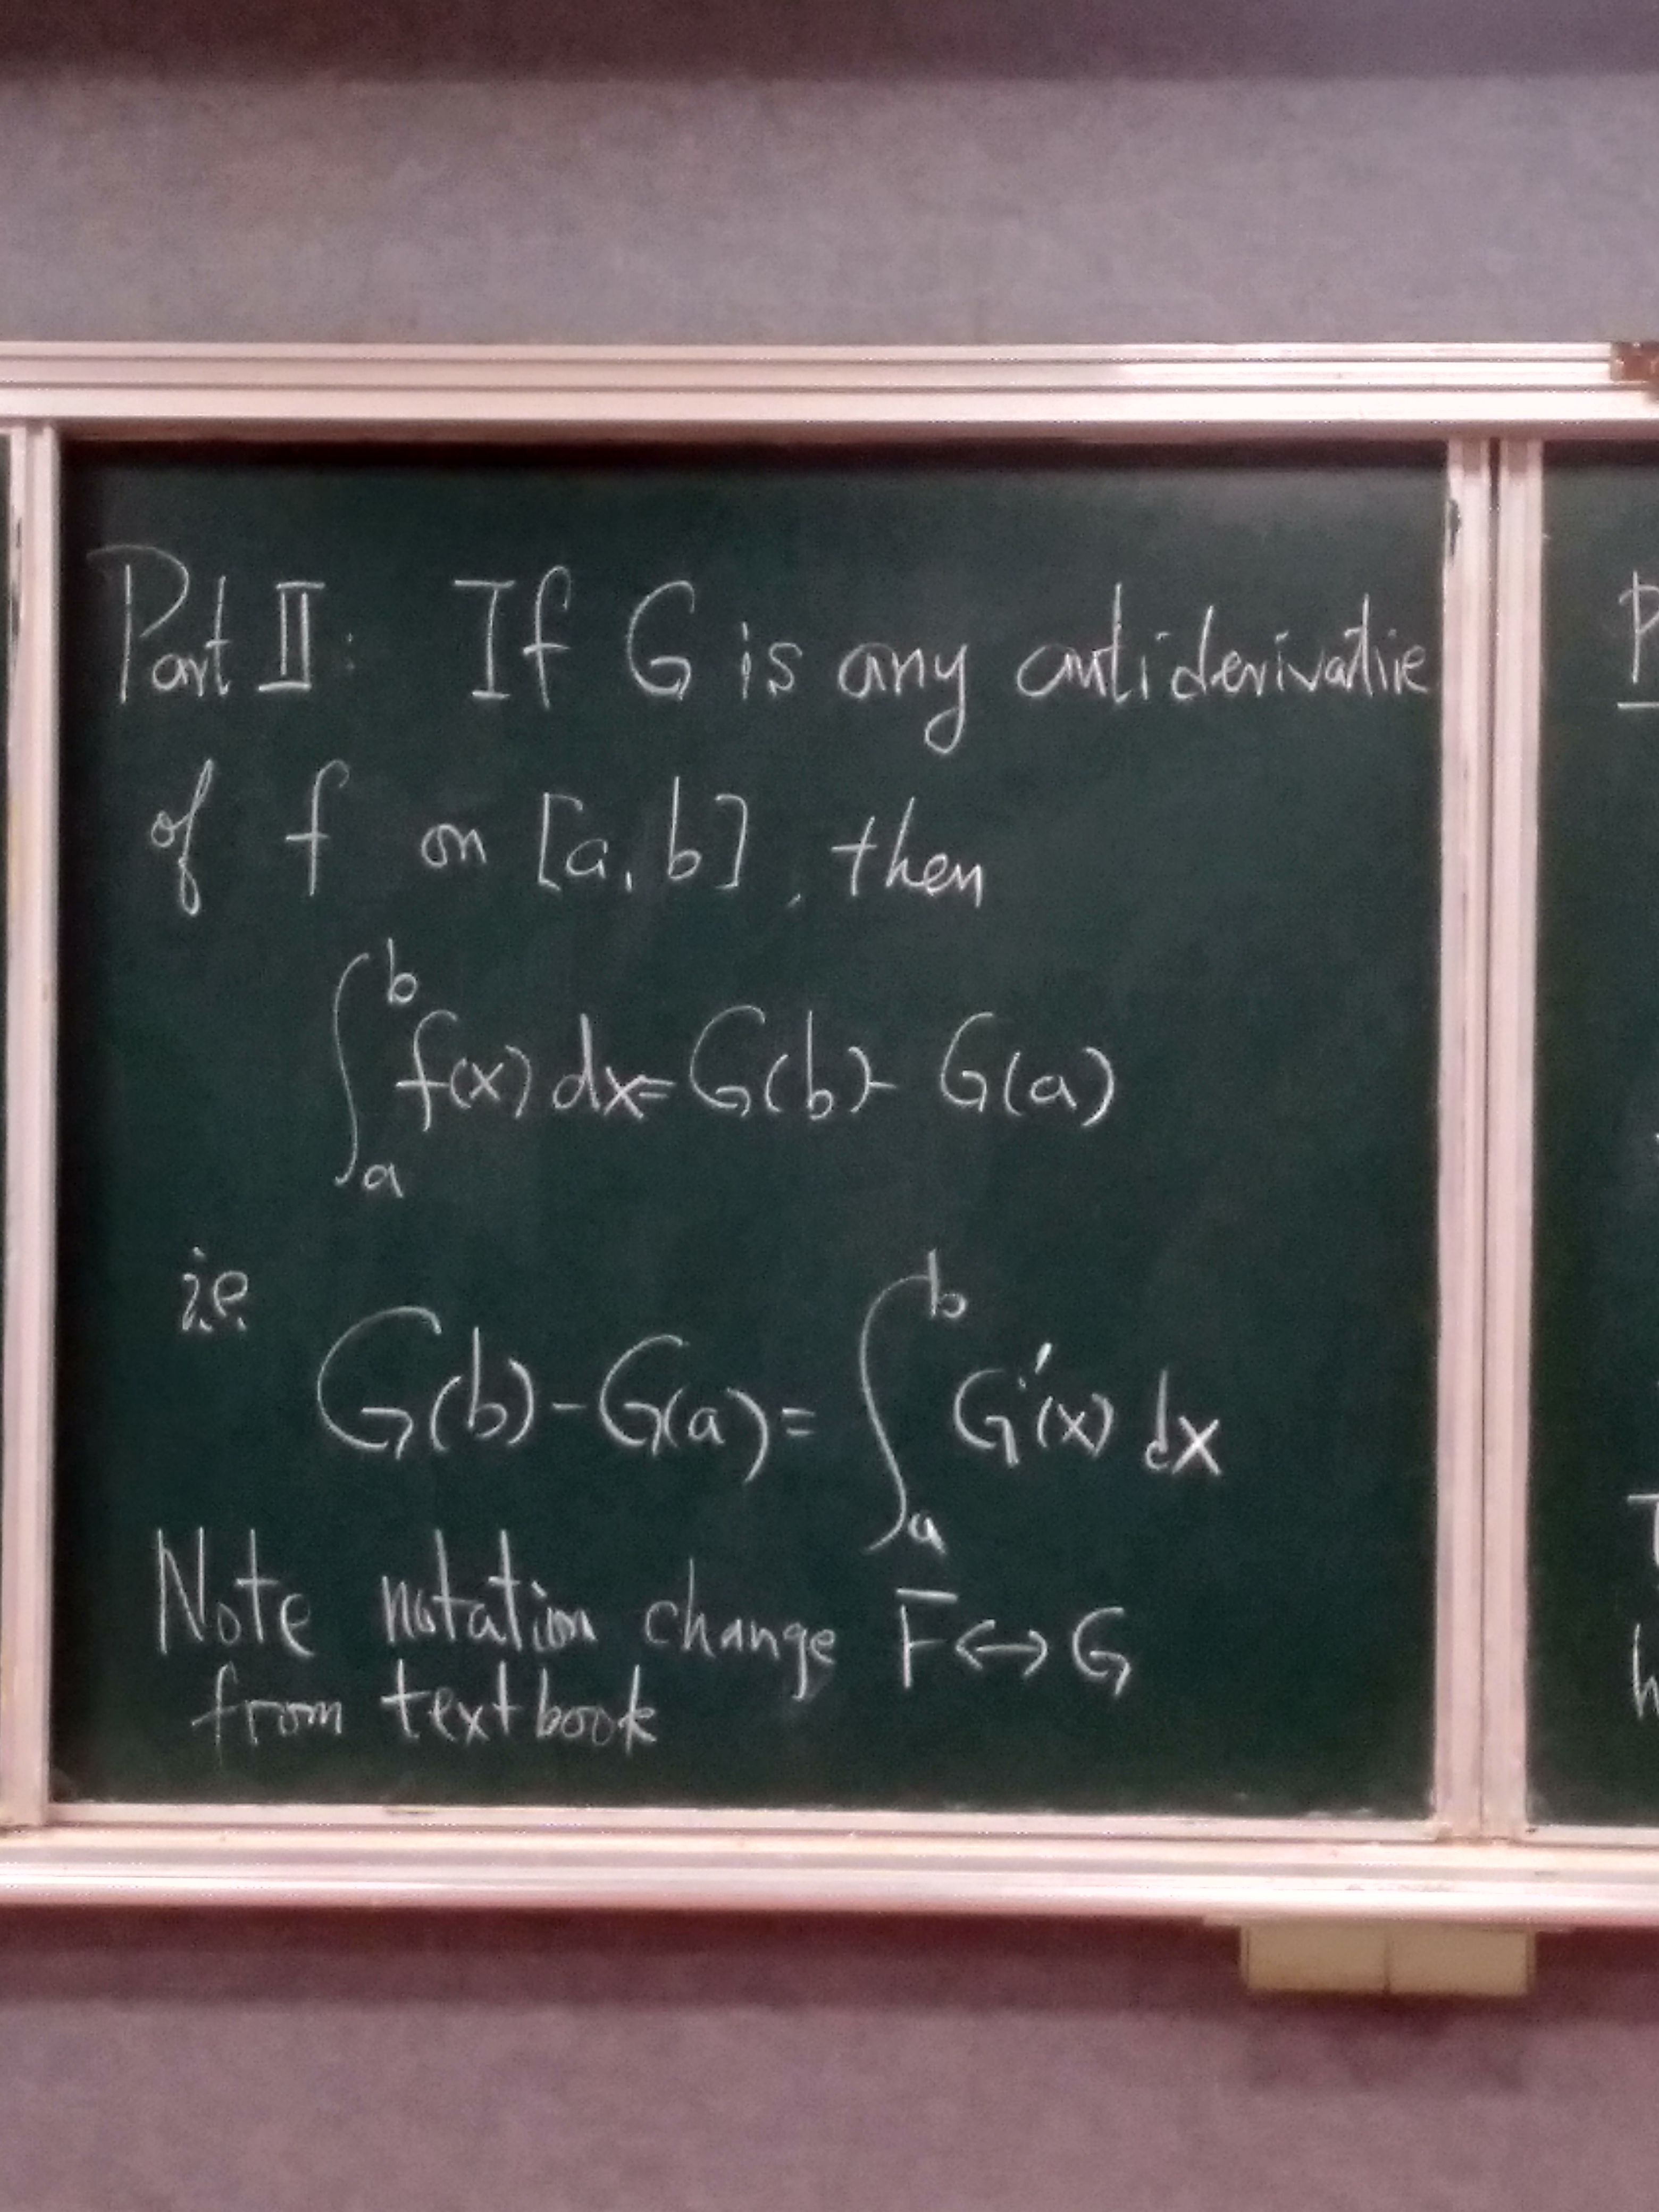 Part II: If G is any antiderivative
of f on [a, b], then
∫_a^b f(x) dx = G(b) - G(a)
i.e.
G(b) - G(a) = ∫_a^b G'(x) dx
Note notation change F ↔ G
from textbook